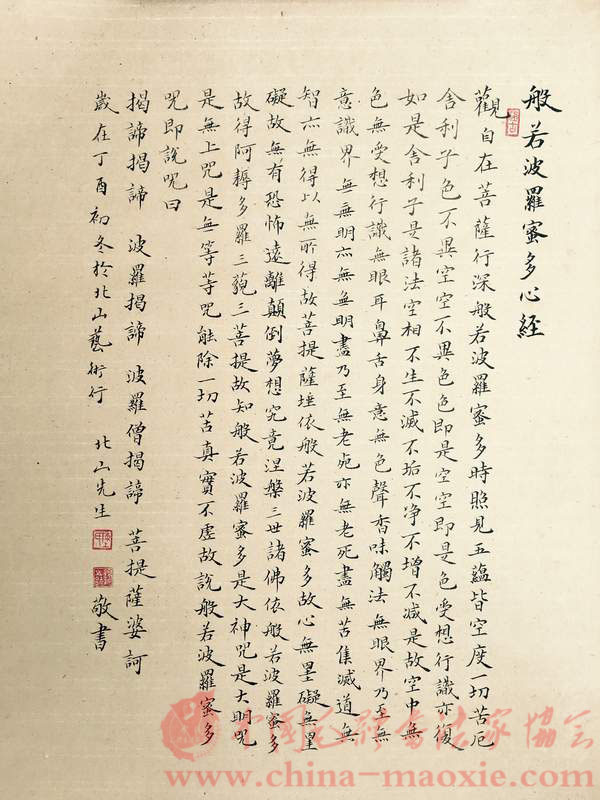 般若波羅蜜多心経
觀自在菩薩行深般若波羅蜜多時照見五蘊皆空度一切苦厄
舍利子色不異空空不異色色即是空空即是色受想行識亦復
如是舍利子是諸法空相不生不滅不垢不净不增不减是故空中無
色無受想行識無眼耳鼻舌身意無色聲香味觸法無眼界乃至無
意識界無無明亦無無明盡乃至無老死亦無老死盡無苦集滅道無
智亦無得以無所得故菩提薩埵依般若波羅蜜多故心無罣礙無罣
礙故無有恐怖遠離顛倒夢想究竟涅槃三世諸佛依般若波羅蜜多
故得阿耨多羅三藐三菩提故知般若波羅蜜多是大神咒是大明咒
是無上咒是無等等咒能除一切苦真實不虛故說般若波羅蜜多
咒即說咒曰
揭諦揭諦 波羅揭諦 波羅僧揭諦 菩提薩婆訶
歲在丁酉初冬於北山藝術行 北山先生 敬書
中国毛體書法家協会
www.china-maoxie.com